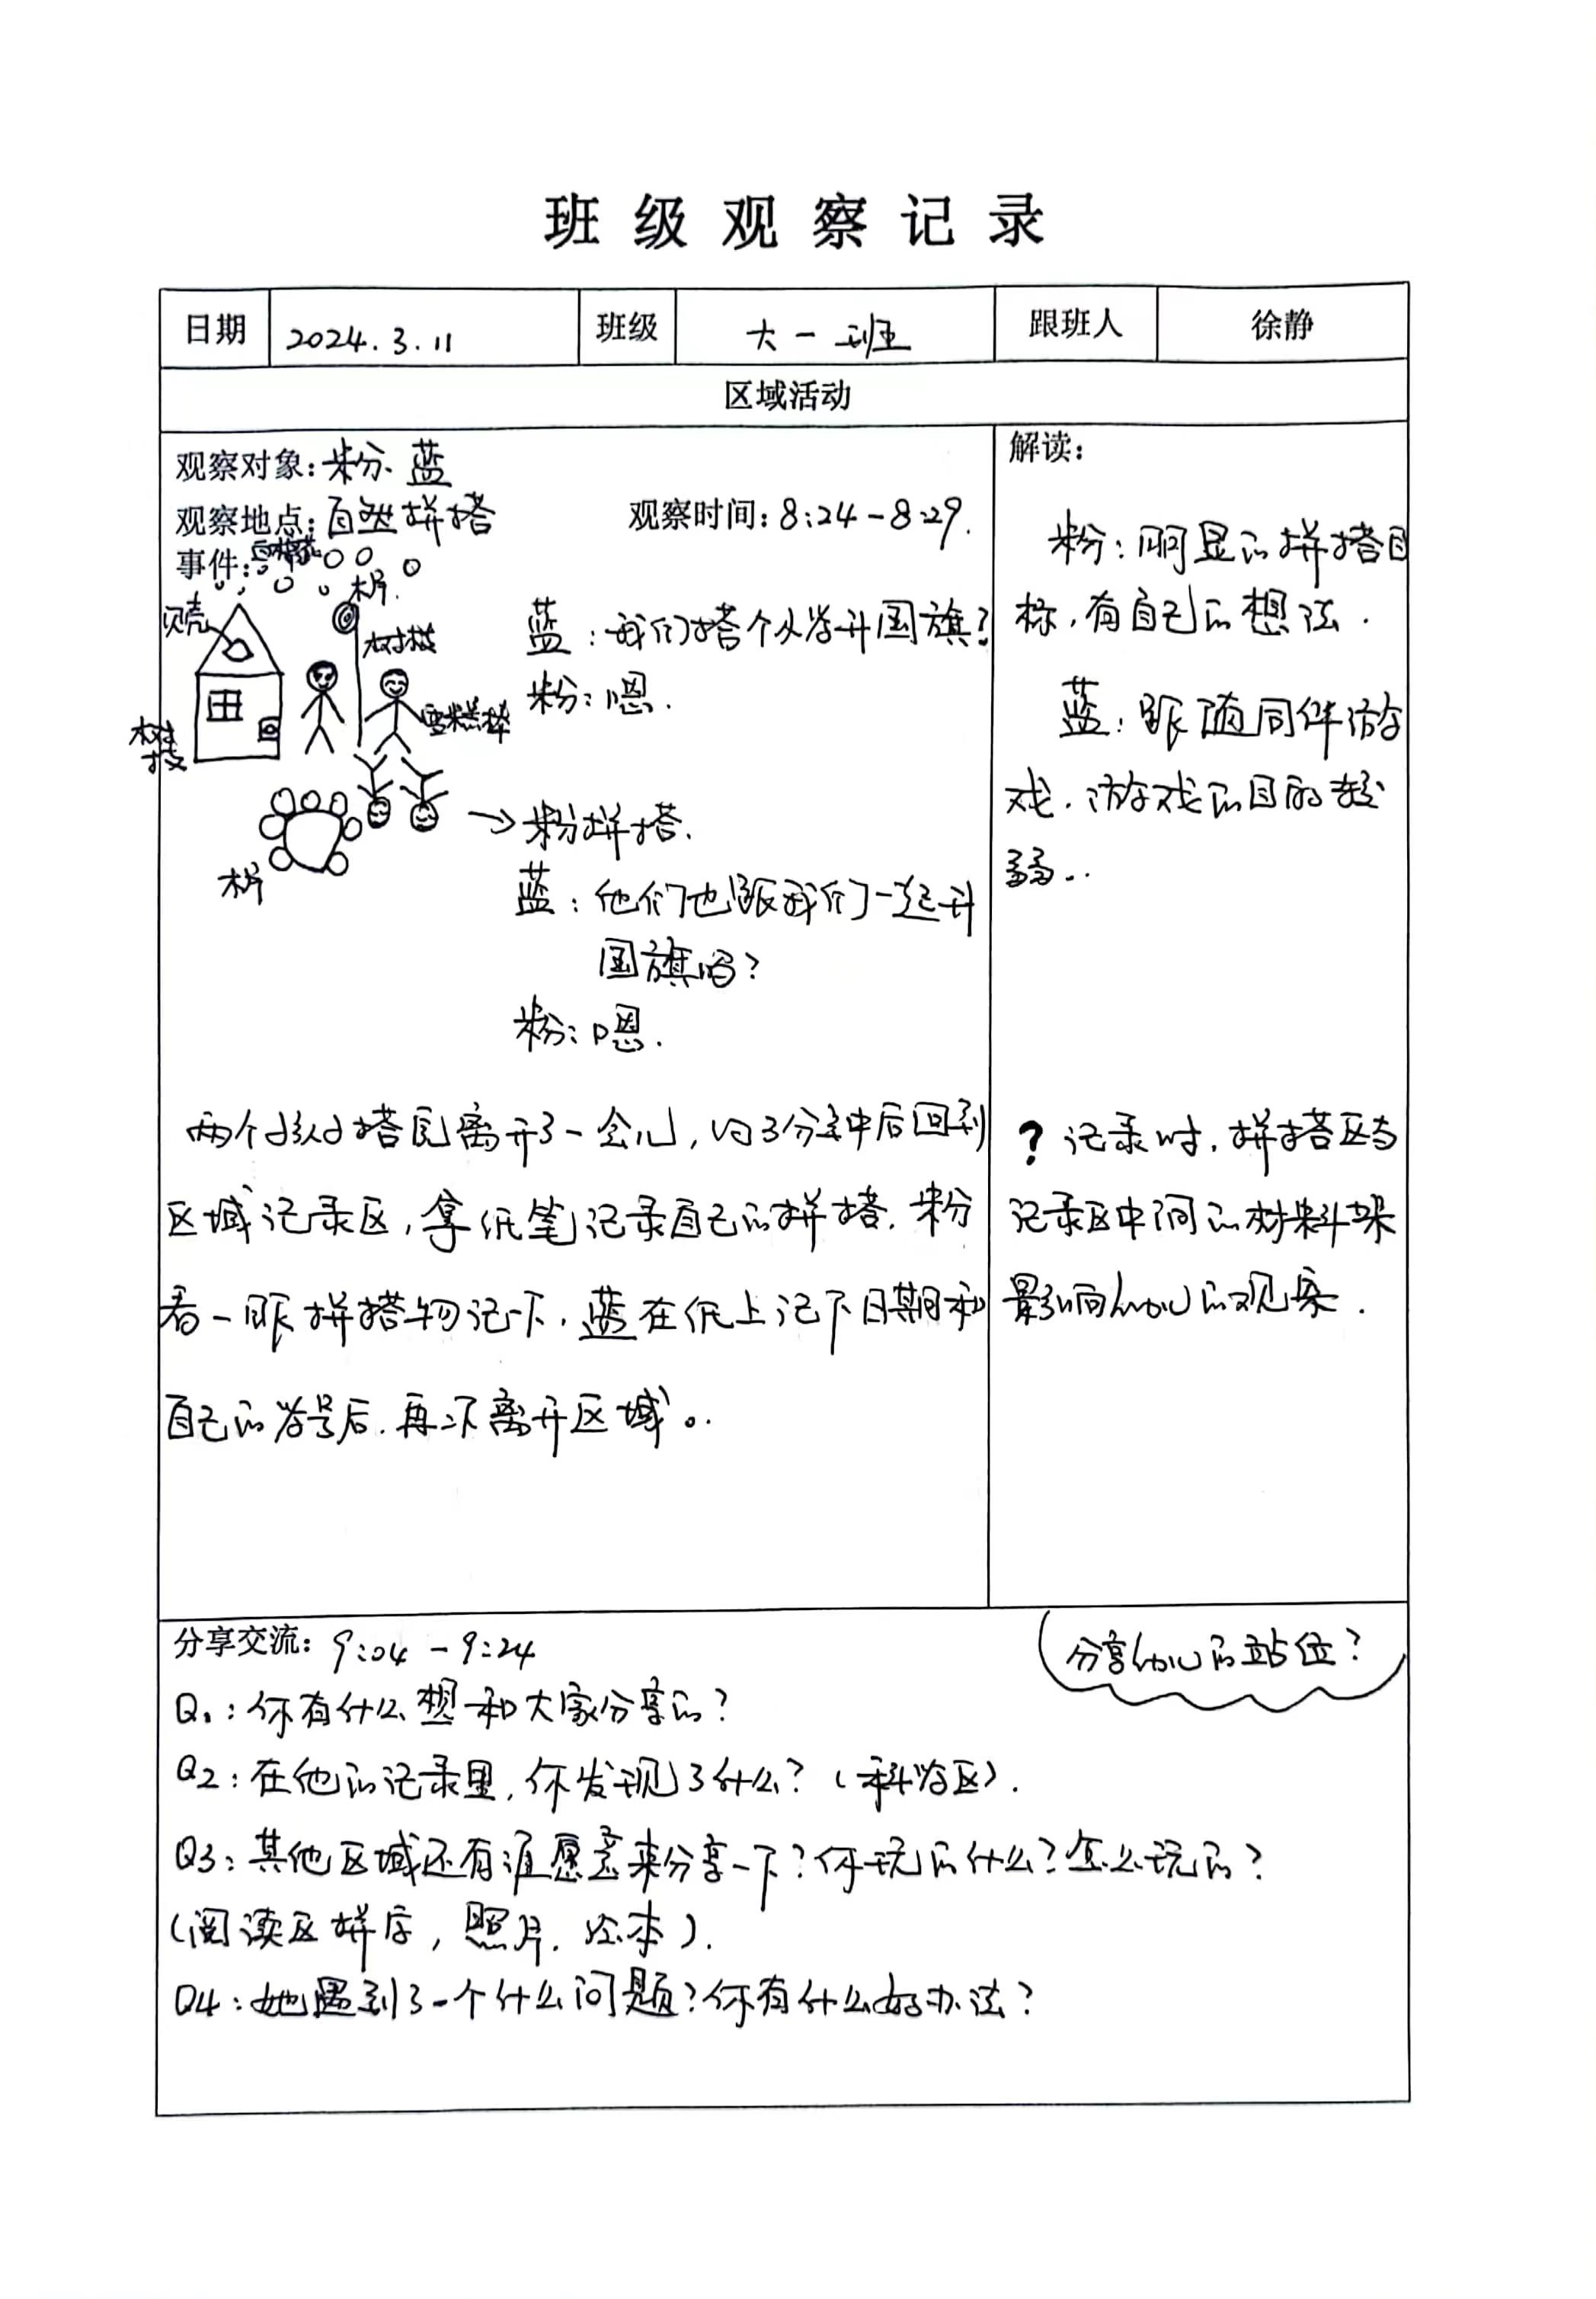 班级观察记录
日期 2024.3.11 班级 大一班 跟班人 徐静
区域活动
观察对象：粉、蓝
观察地点：自然拼搭 观察时间：8:24-8:29.
事件：
木片.
贝壳
树枝
雪糕棒
树枝
木片
蓝：我们搭个小学升国旗？
粉：嗯.
→粉拼搭.
蓝：他们也跟我们一起升
国旗吗？
粉：嗯.
两个人搭完离开了一会儿，约3分钟后回到
区域记录区，拿纸笔记录自己的拼搭.粉
看一眼拼搭物记一下.蓝在纸上记下日期和
自己的学号后.再次离开区域。
解读：
粉：明显的拼搭目
标，有自己的想法.
蓝：跟随同伴游
戏.游戏的目的较
弱..
？记录时.拼搭区与
记录区中间的材料架
影响幼儿的观察.
分享交流：9:04-9:24
分享幼儿的站位？
Q1：你有什么想和大家分享的？
Q2：在他的记录里，你发现了什么？（科学区）.
Q3：其他区域还有谁愿意来分享一下？你玩的什么？怎么玩的？
（阅读区拼字，照片.绘本）.
Q4：她遇到了一个什么问题？你有什么好办法？